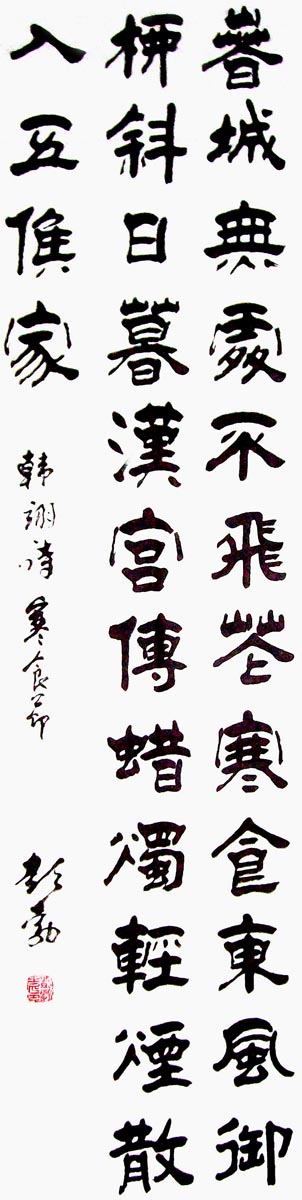 春城無處不飛花寒食東風御
柳斜日暮漢宮傳蜡燭輕煙散
入五侯家
韓翃詩寒食節
彭勃